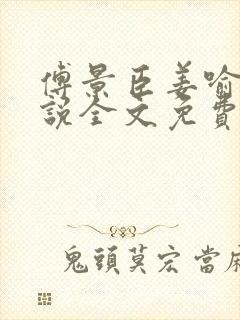 傅景臣姜喻
說全文免費
鬼頭莫宏當麻